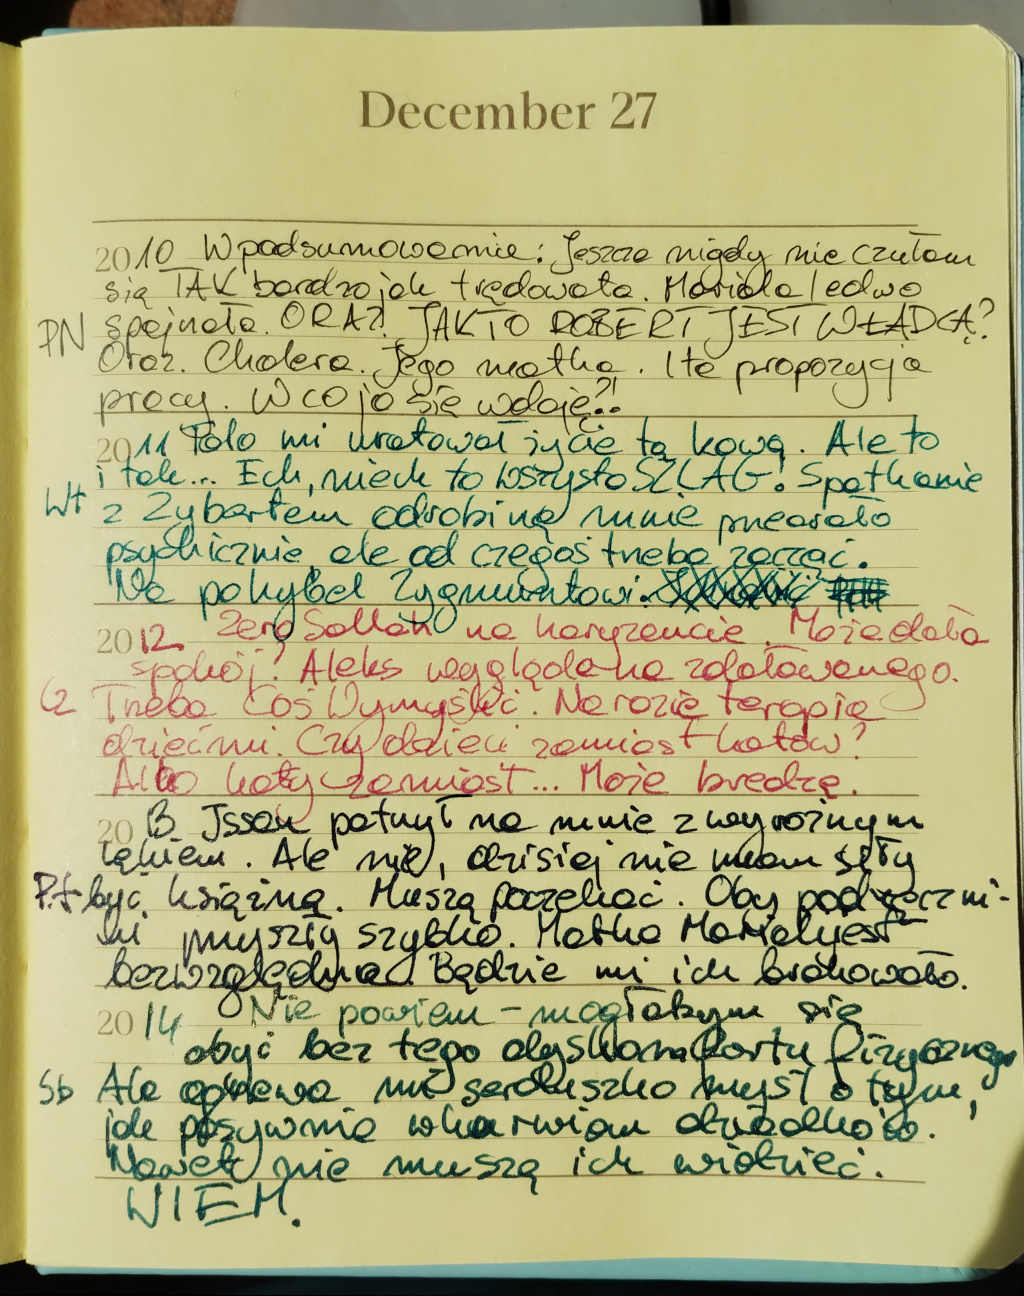 December 27
2010 W podsumowanie: Jeszcze nigdy nie czułam
się TAK bardzo jak trędowata. Mariola ledwo
PN spojrzała. ORAZ! JAK TO ROBERT JEST WŁADCĄ?
Oraz. Cholera. Jego matka. I ta propozycja
pracy. W co ja się wdaję?!
2011 Polo mi uratował życie tą kawą. Ale to
i tak... Ech, niech to wszysto SZLAG! Spotkanie
Wt z Zybertem odrobinę mnie przeorało
psychicznie, ale od czegoś trzeba zacząć.
Na pohybel Zygmuntowi.
2012 Zero Sallah na horyzoncie. Może dała
spokój? Aleks wygląda na zdołowanego.
Cz Trzeba Coś Wymyślić. Na razie terapia
dziećmi. Czy dzieci zamiast kotów?
Albo koty zamiast... Może bredzę.
2013 Issou patrzył na mnie z wyraźnym
lękiem. Ale nie, dzisiaj nie mam siły
Pt być księżną. Muszą poczekać. Oby podręczni-
ki przyszły szybko. Matka Marioli jest
bezwzględna. Będzie mi ich brakowało.
2014 Nie powiem - mogłabym się
obyć bez tego dyskomfortu fizycznego
Sb Ale ogrzewa mi serduszko myśl o tym,
jak pasywnie wkurwiam dziadków.
Nawet nie muszę ich widzieć.
WIEM.